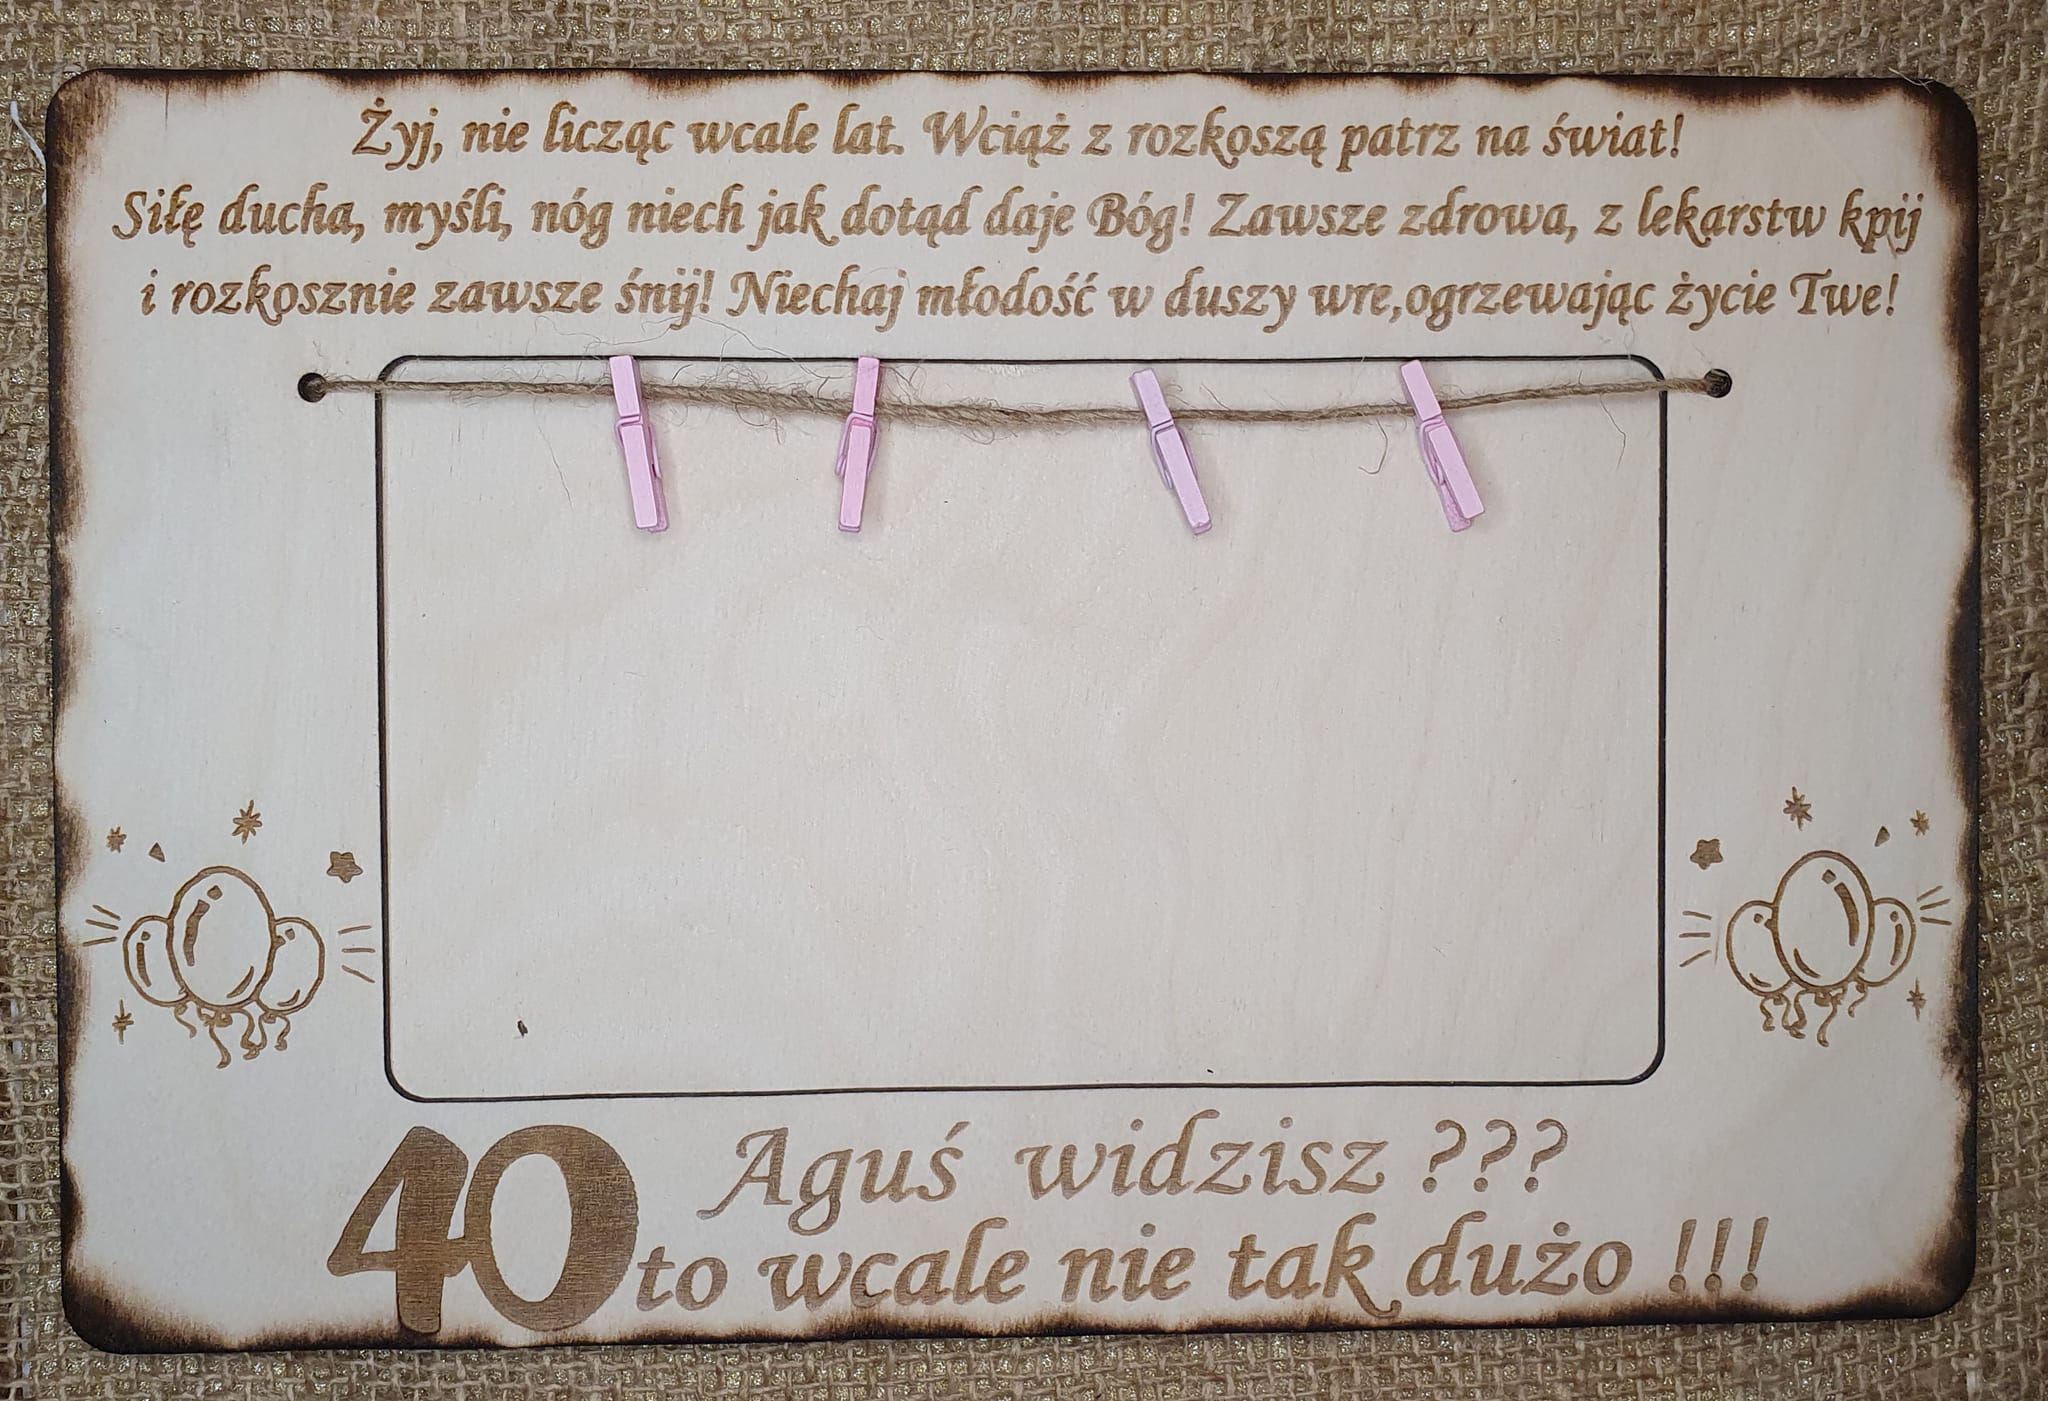 Żyj, nie licząc wcale lat. Wciąż z rozkoszą patrz na świat!
Siłę ducha, myśli, nóg niech jak dotąd daje Bóg! Zawsze zdrowa, z lekarstw kpij
i rozkosznie zawsze śnij! Niechaj młodość w duszy wre,ogrzewając życie Twe!
Aguś widzisz ???
40 to wcale nie tak dużo !!!